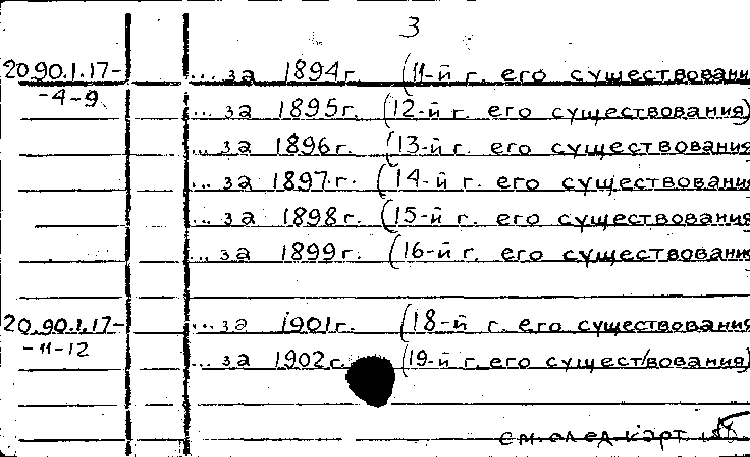 3
20.90.1.17- ...за 1894г. (11-й г. его существовани
-4-9 ...за 1895г. (12-й г. его существования)
...за 1896г. (13-й г. его существования
...за 1897г. (14-й г. его существовани
...за 1898г. (15-й г. его существования
...за 1899г. (16-й г. его существовани
20.90.1.17- ...за 1901г. (18-й г. его существования
-11-12 ...за 1902г. (19-й г. его существования)
см. след. карт.